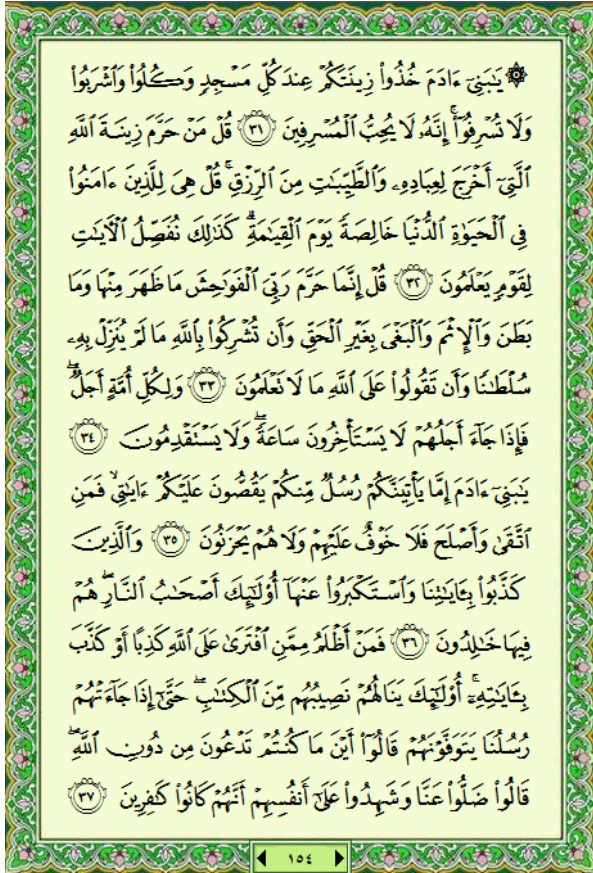 ۞ يَٰبَنِىٓ ءَادَمَ خُذُوا۟ زِينَتَكُمْ عِندَ كُلِّ مَسْجِدٍ وَكُلُوا۟ وَٱشْرَبُوا۟
وَلَا تُسْرِفُوٓا۟ ۚ إِنَّهُۥ لَا يُحِبُّ ٱلْمُسْرِفِينَ ٣١ قُلْ مَنْ حَرَّمَ زِينَةَ ٱللَّهِ
ٱلَّتِىٓ أَخْرَجَ لِعِبَادِهِۦ وَٱلطَّيِّبَٰتِ مِنَ ٱلرِّزْقِ ۚ قُلْ هِىَ لِلَّذِينَ ءَامَنُوا۟
فِى ٱلْحَيَوٰةِ ٱلدُّنْيَا خَالِصَةً يَوْمَ ٱلْقِيَٰمَةِ ۗ كَذَٰلِكَ نُفَصِّلُ ٱلْءَايَٰتِ
لِقَوْمٍ يَعْلَمُونَ ٣٢ قُلْ إِنَّمَا حَرَّمَ رَبِّىَ ٱلْفَوَٰحِشَ مَا ظَهَرَ مِنْهَا وَمَا
بَطَنَ وَٱلْإِثْمَ وَٱلْبَغْىَ بِغَيْرِ ٱلْحَقِّ وَأَن تُشْرِكُوا۟ بِٱللَّهِ مَا لَمْ يُنَزِّلْ بِهِۦ
سُلْطَٰنًا وَأَن تَقُولُوا۟ عَلَى ٱللَّهِ مَا لَا تَعْلَمُونَ ٣٣ وَلِكُلِّ أُمَّةٍ أَجَلٌ ۖ
فَإِذَا جَآءَ أَجَلُهُمْ لَا يَسْتَأْخِرُونَ سَاعَةً ۖ وَلَا يَسْتَقْدِمُونَ ٣٤
يَٰبَنِىٓ ءَادَمَ إِمَّا يَأْتِيَنَّكُمْ رُسُلٌ مِّنكُمْ يَقُصُّونَ عَلَيْكُمْ ءَايَٰتِى ۙ فَمَنِ
ٱتَّقَىٰ وَأَصْلَحَ فَلَا خَوْفٌ عَلَيْهِمْ وَلَا هُمْ يَحْزَنُونَ ٣٥ وَٱلَّذِينَ
كَذَّبُوا۟ بِـَٔايَٰتِنَا وَٱسْتَكْبَرُوا۟ عَنْهَآ أُو۟لَٰٓئِكَ أَصْحَٰبُ ٱلنَّارِ ۖ هُمْ
فِيهَا خَٰلِدُونَ ٣٦ فَمَنْ أَظْلَمُ مِمَّنِ ٱفْتَرَىٰ عَلَى ٱللَّهِ كَذِبًا أَوْ كَذَّبَ
بِـَٔايَٰتِهِۦٓ ۚ أُو۟لَٰٓئِكَ يَنَالُهُمْ نَصِيبُهُم مِّنَ ٱلْكِتَٰبِ ۖ حَتَّىٰٓ إِذَا جَآءَتْهُمْ
رُسُلُنَا يَتَوَفَّوْنَهُمْ قَالُوٓا۟ أَيْنَ مَا كُنتُمْ تَدْعُونَ مِن دُونِ ٱللَّهِ ۖ
قَالُوا۟ ضَلُّوا۟ عَنَّا وَشَهِدُوا۟ عَلَىٰٓ أَنفُسِهِمْ أَنَّهُمْ كَانُوا۟ كَٰفِرِينَ ٣٧
١٥٤